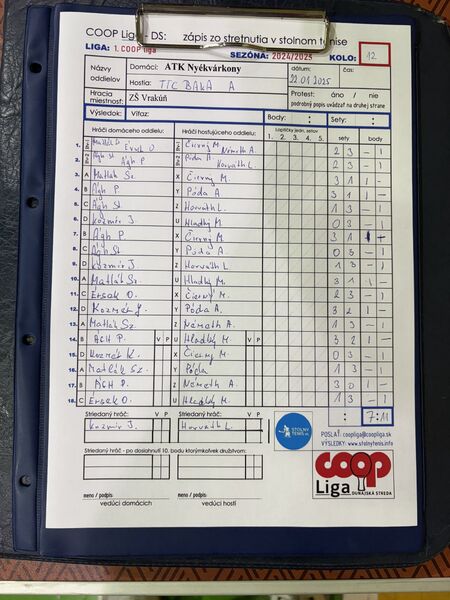 COOP Liga - DS: zápis zo stretnutia v stolnom tenise
LIGA: 1. COOP liga SEZÓNA: 2024/2025 KOLO: 12
Názvy oddielov Domáci: ATK Nyékvárkony dátum: 22.01.2025 čas:
Hostia: TTC BAKA A
Hracia miestnosť ZŠ Vrakúň Protest: áno / nie
podrobný popis uvádzať na druhej strane
Výsledok: Víťaz: Body: : Sety: :
Hráči domáceho oddielu: Hráči hosťujúceho oddielu: Loptičky jedn. setov sety body
1. 2. 3. 4. 5.
1. Érsek O. Čierny M. Németh A. 2 3 - 1
2. Ágh St Ágh P. Póda A Horváth L. 2 3 - 1
3. A Matlák Sz. X Čierny M. 3 1 1 -
4. B Ágh P. Y Póda A 3 1 1 -
5. C Ágh St Z Horváth L. 1 3 - 1
6. D Kozmér J. U Hladky M. 0 3 - 1
7. B Ágh P. X Čierny M. 3 1 1 -
8. C Ágh St. Y Póda A. 0 3 - 1
9. D Kozmér J. Z Horváth L 1 3 - 1
10. A Matlák Sz. U Hladky M. 3 1 -
11. C Érsek O. X Čierny M. 2 3 - 1
12. D Kozmér J. Y Póda A. 3 2 1 -
13. A Matlák Sz. Z Németh A. 1 3 - 1
14. B ÁGH P. V P U Hladky M. V P 3 2 1 -
15. D Kozmér X Čierny M. 0 3 - 1
16. A Matlák Sz. Y Póda 1 3 - 1
17. B ÁGH P. Z Németh A. 3 0 1 -
18. C Érsek O. U Hladky M. 1 3 - 1
Striedaný hráč: V P Striedaný hráč: V P : 7:11
Kozmér J. Horváth L.
STOLNÝ TENIS
POSLAŤ: coopliga@coopliga.sk
VÝSLEDKY: www.stolnytenis.info
Striedaný hráč - po dosiahnutí 10. bodu ktorýmkoľvek družstvom:
V P V P
coop
Liga
DUNAJSKÁ STREDA
meno / podpis meno / podpis
vedúci domácich vedúci hostí